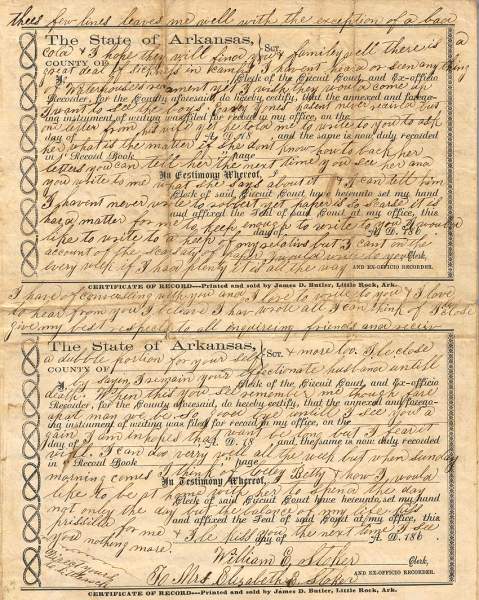 thees few lines leaves me well with the exception of a bad
The State of Arkansas,
cold & I hope they will find you & familey well there is a
COUNTY OF
Sct.
great deal of sickness in camp I havent heard or seen any thing
I,
Clerk of the Circuit Court, and Ex-officio
of Waterhouses regment yet I wish they would come up
Recorder, for the County aforesaid, do hereby certify, that the annexed and forego-
I want to see the boys
ing instrument of writing was filed for record in my office, on the
never
one letter from his wife yet he told me to write to you to ask
day of
A. D. 18
and the same is now duly recorded
her what is the matter if she dont know how to back her
in Record Book
page
letters you can tell her the next time you see her and
In Testimony Whereof, I
you write to me what she says about it & I can tell him
Clerk of said Circuit Court have hereunto set my hand
I havent never wrote to
yet paper is so scarse it is
and affixed the Seal of said Court at my office, this
hard matter for me to keep enough to write to you I would
day of
A. D. 186
like to write to a heap of my relatives but I cant on the
Clerk,
account of the scarsaty of paper I would write to you
AND EX-OFFICIO RECORDER.
every week if I had plenty it is all the way
CERTIFICATE OF RECORD—Printed and sold by James D. Butler, Little Rock, Ark.
I have of conversing with you and I love to write to you & I love
to hear from you I believe I have wrote all I can think of I close
give my best respects to all enquireing friends and receiv
The State of Arkansas,
a dubble portion for your self & more too. I le close
COUNTY OF
Sct.
by sayen I remain your affectionate husband untill
I,
Clerk of the Circuit Court, and Ex-officio
death. When this you see remember me though fare
Recorder, for the County aforesaid, do hereby certify, that the annexed and forego-
apart wee may be so good bye untill I see you a
ing instrument of writing was filed for record in my office, on the
gain I am in hopes that want be long but I fear it
day of
A. D. 18
and the same is now duly recorded
will. I can doo very well all the week but when sunday
in Record Book
page
morning comes I think of
Betty & how I would
In Testimony Whereof, I
like to be at home
to spend the day
Clerk of said Circuit Court have hereunto set my hand
not only the day but the balance of my life kiss
and affixed the Seal of said Court at my office, this
priscilla for me & I le kiss you the next time I see
day of
A. D. 186
you nothing more.
William E. Stoker
Clerk,
To Mrs Elizabeth E. Stoker
AND EX-OFFICIO RECORDER.
CERTIFICATE OF RECORD—Printed and sold by James D. Butler, Little Rock, Ark.